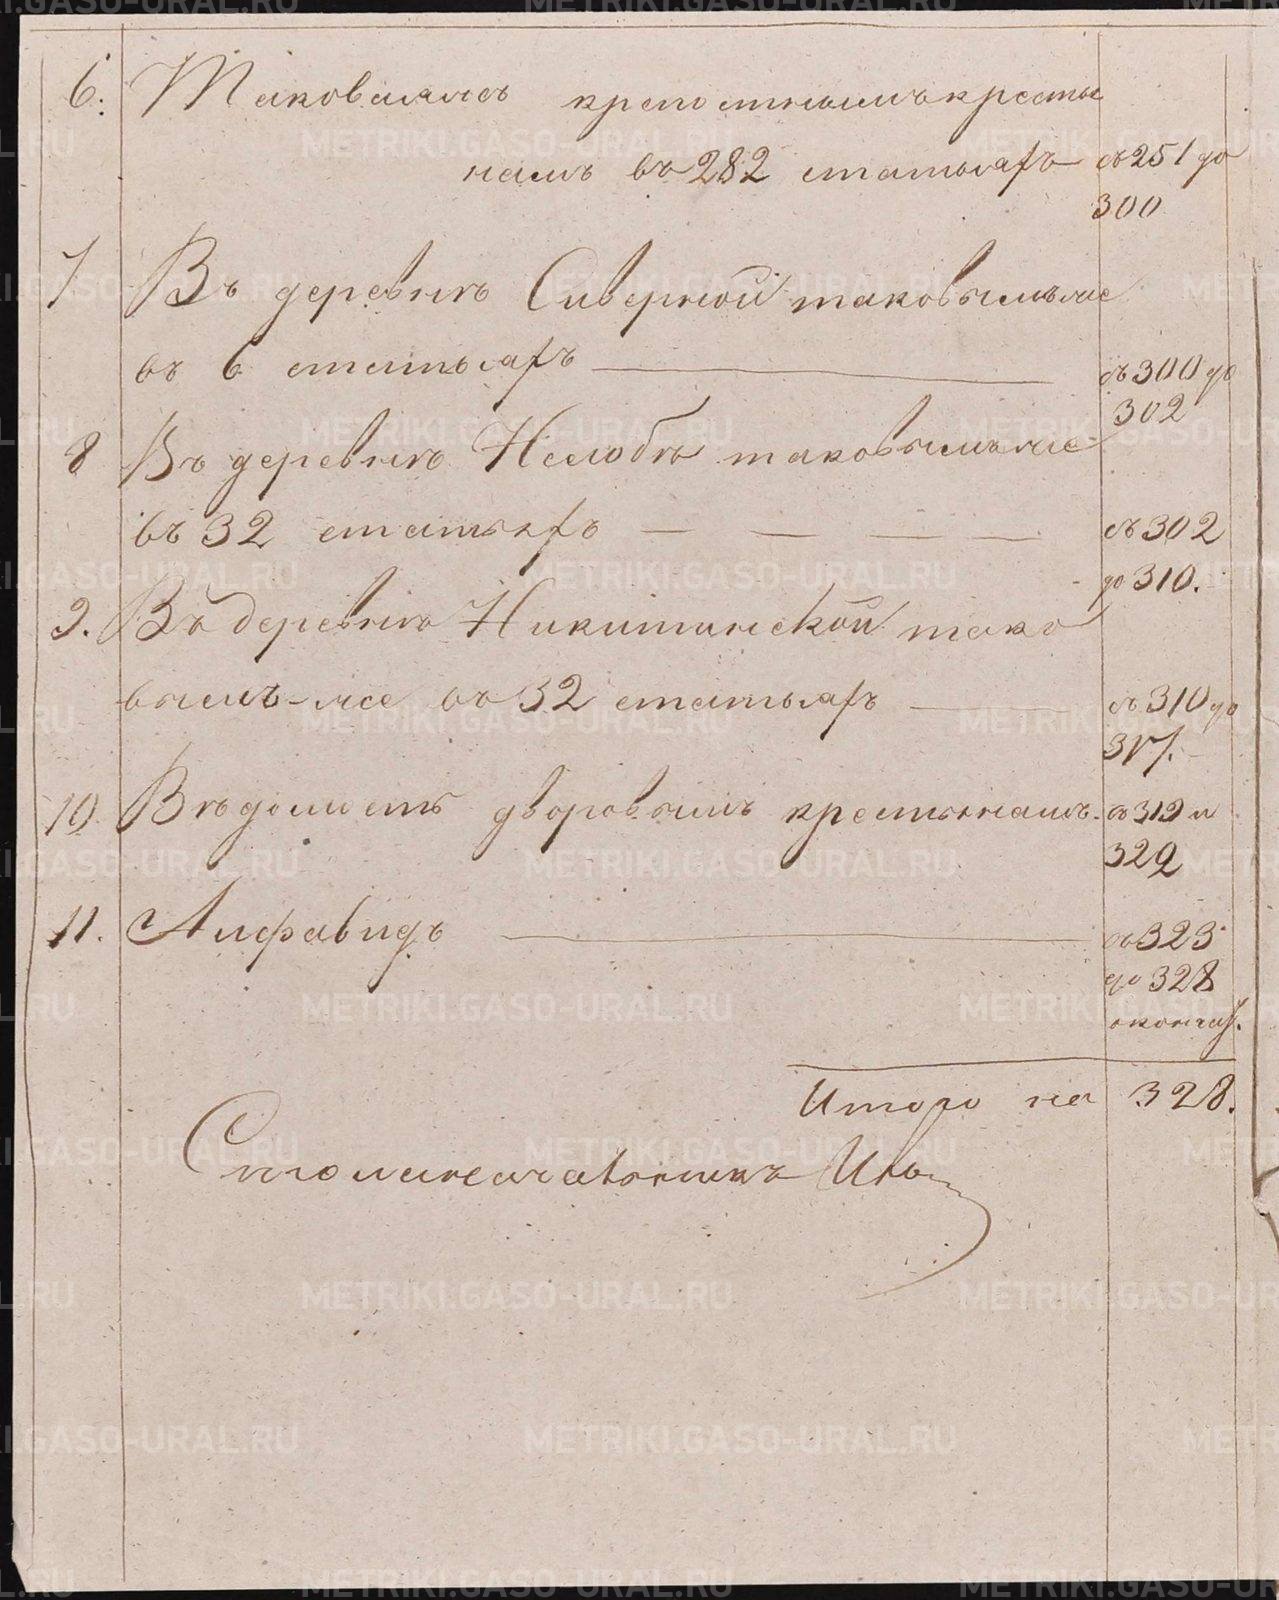 6. Таковаяжъ крепостнымъ крестья
намъ въ 282 статьяхъ съ 251 до
300
7 Въ деревнѣ Сиверной таковымъ же
въ 6 статьяхъ съ 300 до
302
8 Въ деревнѣ Нелобѣ таковымъ же
въ 32 статьяхъ съ 302
до 310.
9. Въ деревнѣ Никитинской тако
вымъ-же въ 32 статьяхъ съ 310 до
317.
10. Вѣдомость дворовымъ крестьянамъ. съ 319 и
322
11. Алфавидъ съ 323
до 328
окончат.
Итого на 328.
Столоначальникъ
METRIKI.GASO-URAL.RU